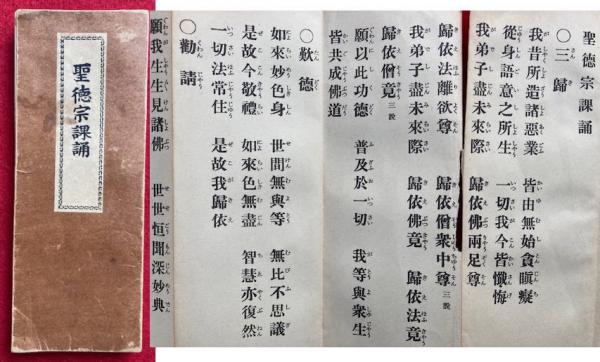 聖德宗課誦
聖德宗課誦
○三歸
我昔所造諸惡業　皆由無始貪瞋癡
從身語意之所生　一切我今皆懺悔
我弟子盡未來際　歸依佛兩足尊
歸依法離欲尊　歸依僧衆中尊 三說
我弟子盡未來際　歸依佛竟　歸依法竟
歸依僧竟 三說
願以此功德　普及於一切　我等與衆生
皆共成佛道
○歎德
如來妙色身　世間無與等　無比不思議
是故今敬禮　如來色無盡　智慧亦復然
一切法常住　是故我歸依
○勸請
願我生生見諸佛　世世恒聞深妙典